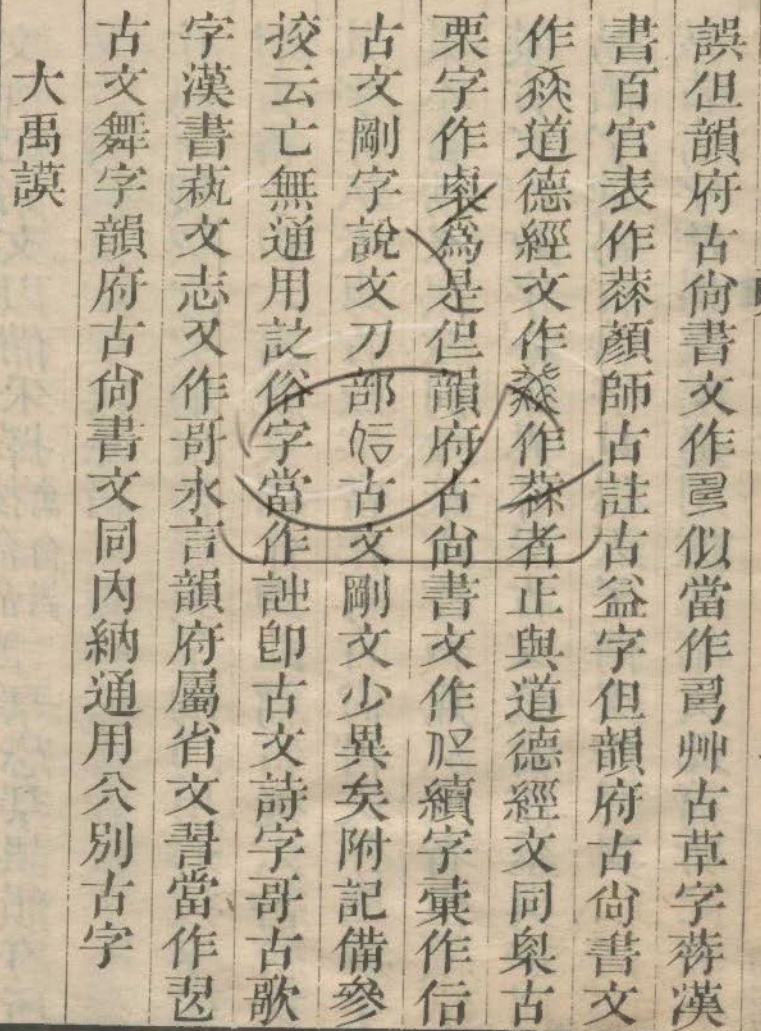 誤但韻府古尙書文作似當作艸古草字漢
書百官表作顏師古註古益字但韻府古尙書文
作道德經文作作者正與道德經文同㮚古
栗字作爲是但韻府古尙書文作續字彙作㐰
古文剛字說文刀部古文剛文少異矣附記備參
挍云亡無通用俗字當作訨卽古文詩字哥古歌
字漢書萟文志又作哥永言韻府屬省文當作
古文舞字韻府古尙書文同內納通用㕣別古字
大禹謨